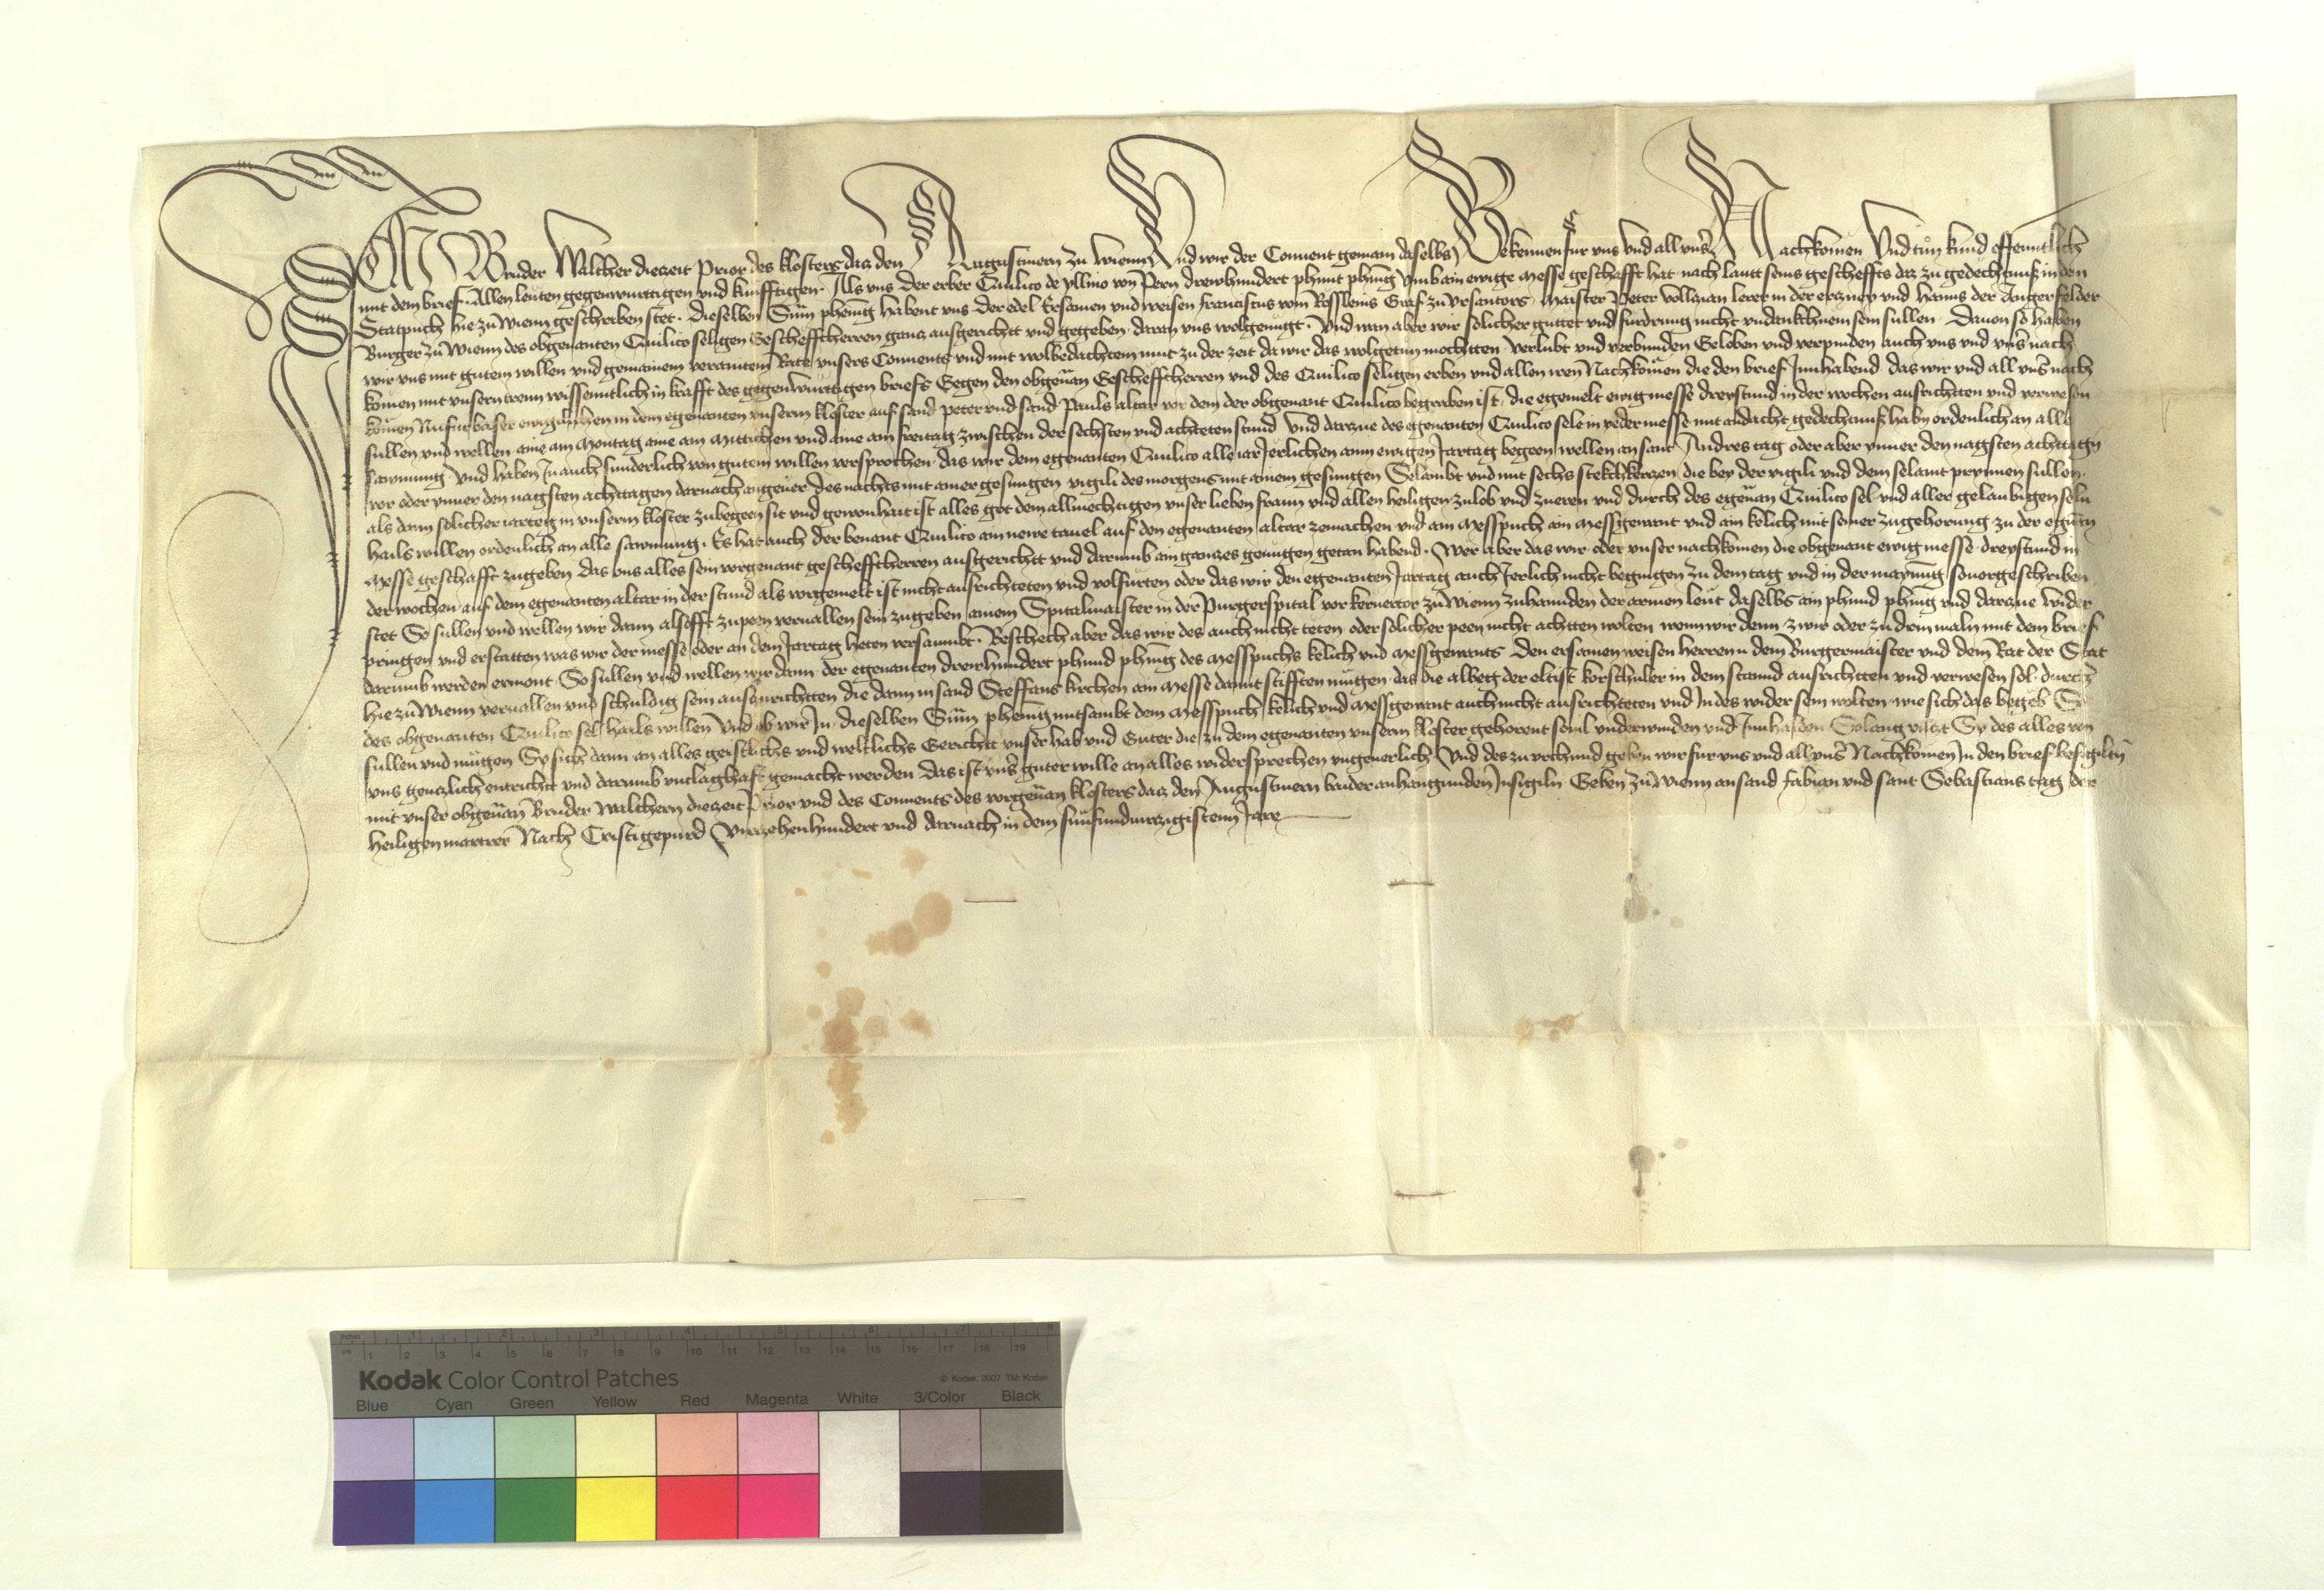 ICh Bruder Walcher diezeit Prior des klosters daz den Augustinern zu Wienn Und wir der Conuent gemain daselbs Bekennen fur vns vnd all vnser Nachkomen Und tun kund offenntlich
mit dem brief Allen leuten gegenwurttigen vnd kunfftigen. Als vns der erber Quilico de yllino von Pern drewhundert phunt phenig vmb ain ewige messe geschafft hat nach lautt seins gescheffts daz zu gedechtnuss in den
Statpuch hie zu Wienn geschriben stet. dieselben Sum phenig habent vns der edel Ersamen vnd weisen Franciscus vom Graf zu maister Peter Volczian lerer in der erczney vnd Hanns der Angerfelder
Burger zu Wienn des obgenanten Quilico seligen Gescheftherren gancz ausgericht vnd gegeben daran vns wolgenugt. Vnd wan aber wir solicher guttet vnd furdrung nicht vndankchnem sein sullen. Dauon so haben
wir vns mit gutem willen vnd gemainem veraintem Rate vnsers Conuents vnd mit wolbedachtem mut zu der zeit da wir das wolgetun mochtten verlubt vnd verbunden Geloben vnd verpinden auch vns vnd vnser nach
komen mit vnsern trewn wissenntlich in krafft des gegenwurttigen briefs Gegen den obgenan Geschefftherren vnd des Quilico seligen erben vnd allen iren Nachkomen die den brief Innhabend das wir vnd all vnser nach
komen Nu furbaser ewigklichen in dem egenanten vnserm kloster auf sand peter vnd sand Pauls altar vor dem der obgenant Quilico begraben ist, die egemelt ewig messe dreystund in der wochen ausrichten vnd verwesen
sullen vnd wellen aine am Montag aine am Mittichen vnd aine am freitag zwischen der sechsten vnd achteten stund Vnd darzue des egenanten Quilico sele in yeder messe mit andacht gedechtnuss habn ordenlich an alle
sawmung Vnd haben In auch sunderlich von gutem willen versprochen das wir dem egenanten Quilico alle iar Ierlichen ainn ewigen Iartag begeen wellen an sant Andres tag oder aber ynner den nagsten achttagen
vor oder ynner den nagsten achttagen darnach angeuer des nachts mit ainer gesungen vigili des morgens mit ainem gesungen Selambt vnd mit sechs stekchkerzen die bey der vigili vnd dem selamt prynnen sullen.
als dann solicher iartag in vnserm kloster zubegeen sit vnd gewonhait ist alles got dem allmechtigen vnser lieben frawn vnd allen heiligen zulob vnd zueren vnd durch des egenan Quilico sel vnd aller gelaubigen seln
hails willen ordenlich an alle sawmung. Es hat auch der benant Quilico ain newe tauel auf den egenanten altar zemachen vnd ain messpuch ain messgewant vnd ain kelich mit seiner zugehorung zu der egenan
messe geschafft zugeben das vns alles sein vorgenant geschefftherren ausgerichtt vnd darumb ain ganczes genugen getan habend. Wer aber das wir oder vnser nachkomen die obgenant ewig messe dreystund in
der wochen auf dem egenanten altar in der stund als vorgemelt ist nicht ausrichteten vnd volfurten oder das wir den egenanten Iartag auch Ierlich nicht begiengen zu dem tag vnd in der maynung so vorgeschriben
stet So sullen vnd wellen wir dann alsofft zupeen veruallen sein zugeben ainem Spitalmaister in der Purgerspital vor kernertor zu Wienn zuhannden der armen leut daselbs ain phund phenig vnd darzue wider
pringen vnd erstatten was wir der messe oder an dem Iartag heten versaumbt. Beschech aber das wir des auch nicht teten oder solicher peen nicht achtten wolten wenn wir denn zwir oder zu drin maln mit dem brief
darumb werden ermont. So sullen vnd wellen wir dann der egenanten drewhundert phund phenig des messpuchs kelich vnd messgewants den ersamen weisen herren dem Burgermaister vnd dem Rat der Stat
hie zu Wienn veruallen vnd schuldig sein auszurichtten die dann in sand Steffans kirchen ain messe damit stifften mugen das die albeg der eltist korschuler in dem stannd ausrichtten vnd verwesen sol durch
des obgenanten Quilico sel hails willen Vnd ob wir In dieselben Sum phenig mitsambt dem messpuch kelich vnd messgewant auch nicht ausrichteten vnd In des wider sein wolten wie sich das begeb So
sullen vnd mugen Sy sich dann an alles geistlichs vnd weltlichs Gerichtt vnser hab vnd Guter die zu dem egenanten vnserm kloster gehorent souil vnderwinden vnd Innhaben Solang vncz Sy des alles von
vns genczlich entrichtt vnd darumb vnclaghaft gemacht werden das ist vnser guter wille an alles widersprechen vngeuerlich Vnd des zu vrchund geben wir fur vns vnd all vnser Nachkomen In den brief besigilten
mit vnser obgenan Bruder Walchern diezeit Prior vnd des Conuents des vorgenan klosters daz den Augustinern baider anhangunden Insigiln Geben zu Wienn an sand Fabian vnd sant Sebastians tag der
heiligen martrer Nach Cristi gepurd Vierzehenhundert vnd darnach in dem funfundvierzigistenn Iare
inches 1 2 3 4 5 6 7 8
cm 1 2 3 4 5 6 7 8 9 10 11 12 13 14 15 16 17 18 19
Kodak Color Control Patches © Kodak, 2007 TM: Kodak
Blue Cyan Green Yellow Red Magenta White 3/Color Black